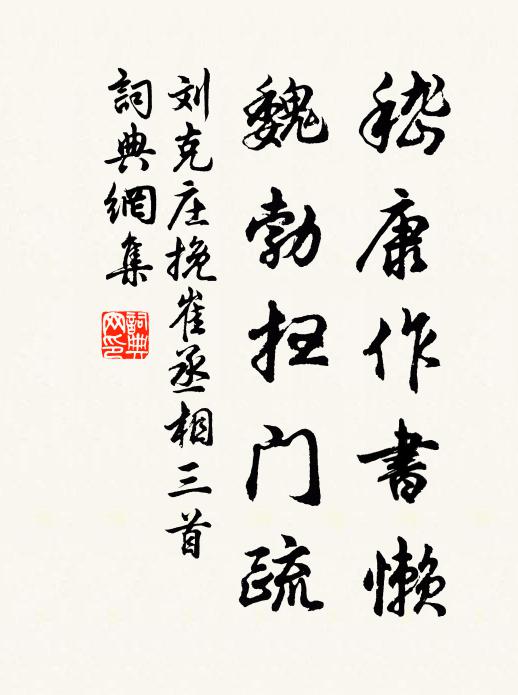 嵇康作書懶
魏勃扫门疏
刘克庄挽崔丞相三首
詞典網集
詞典
网印